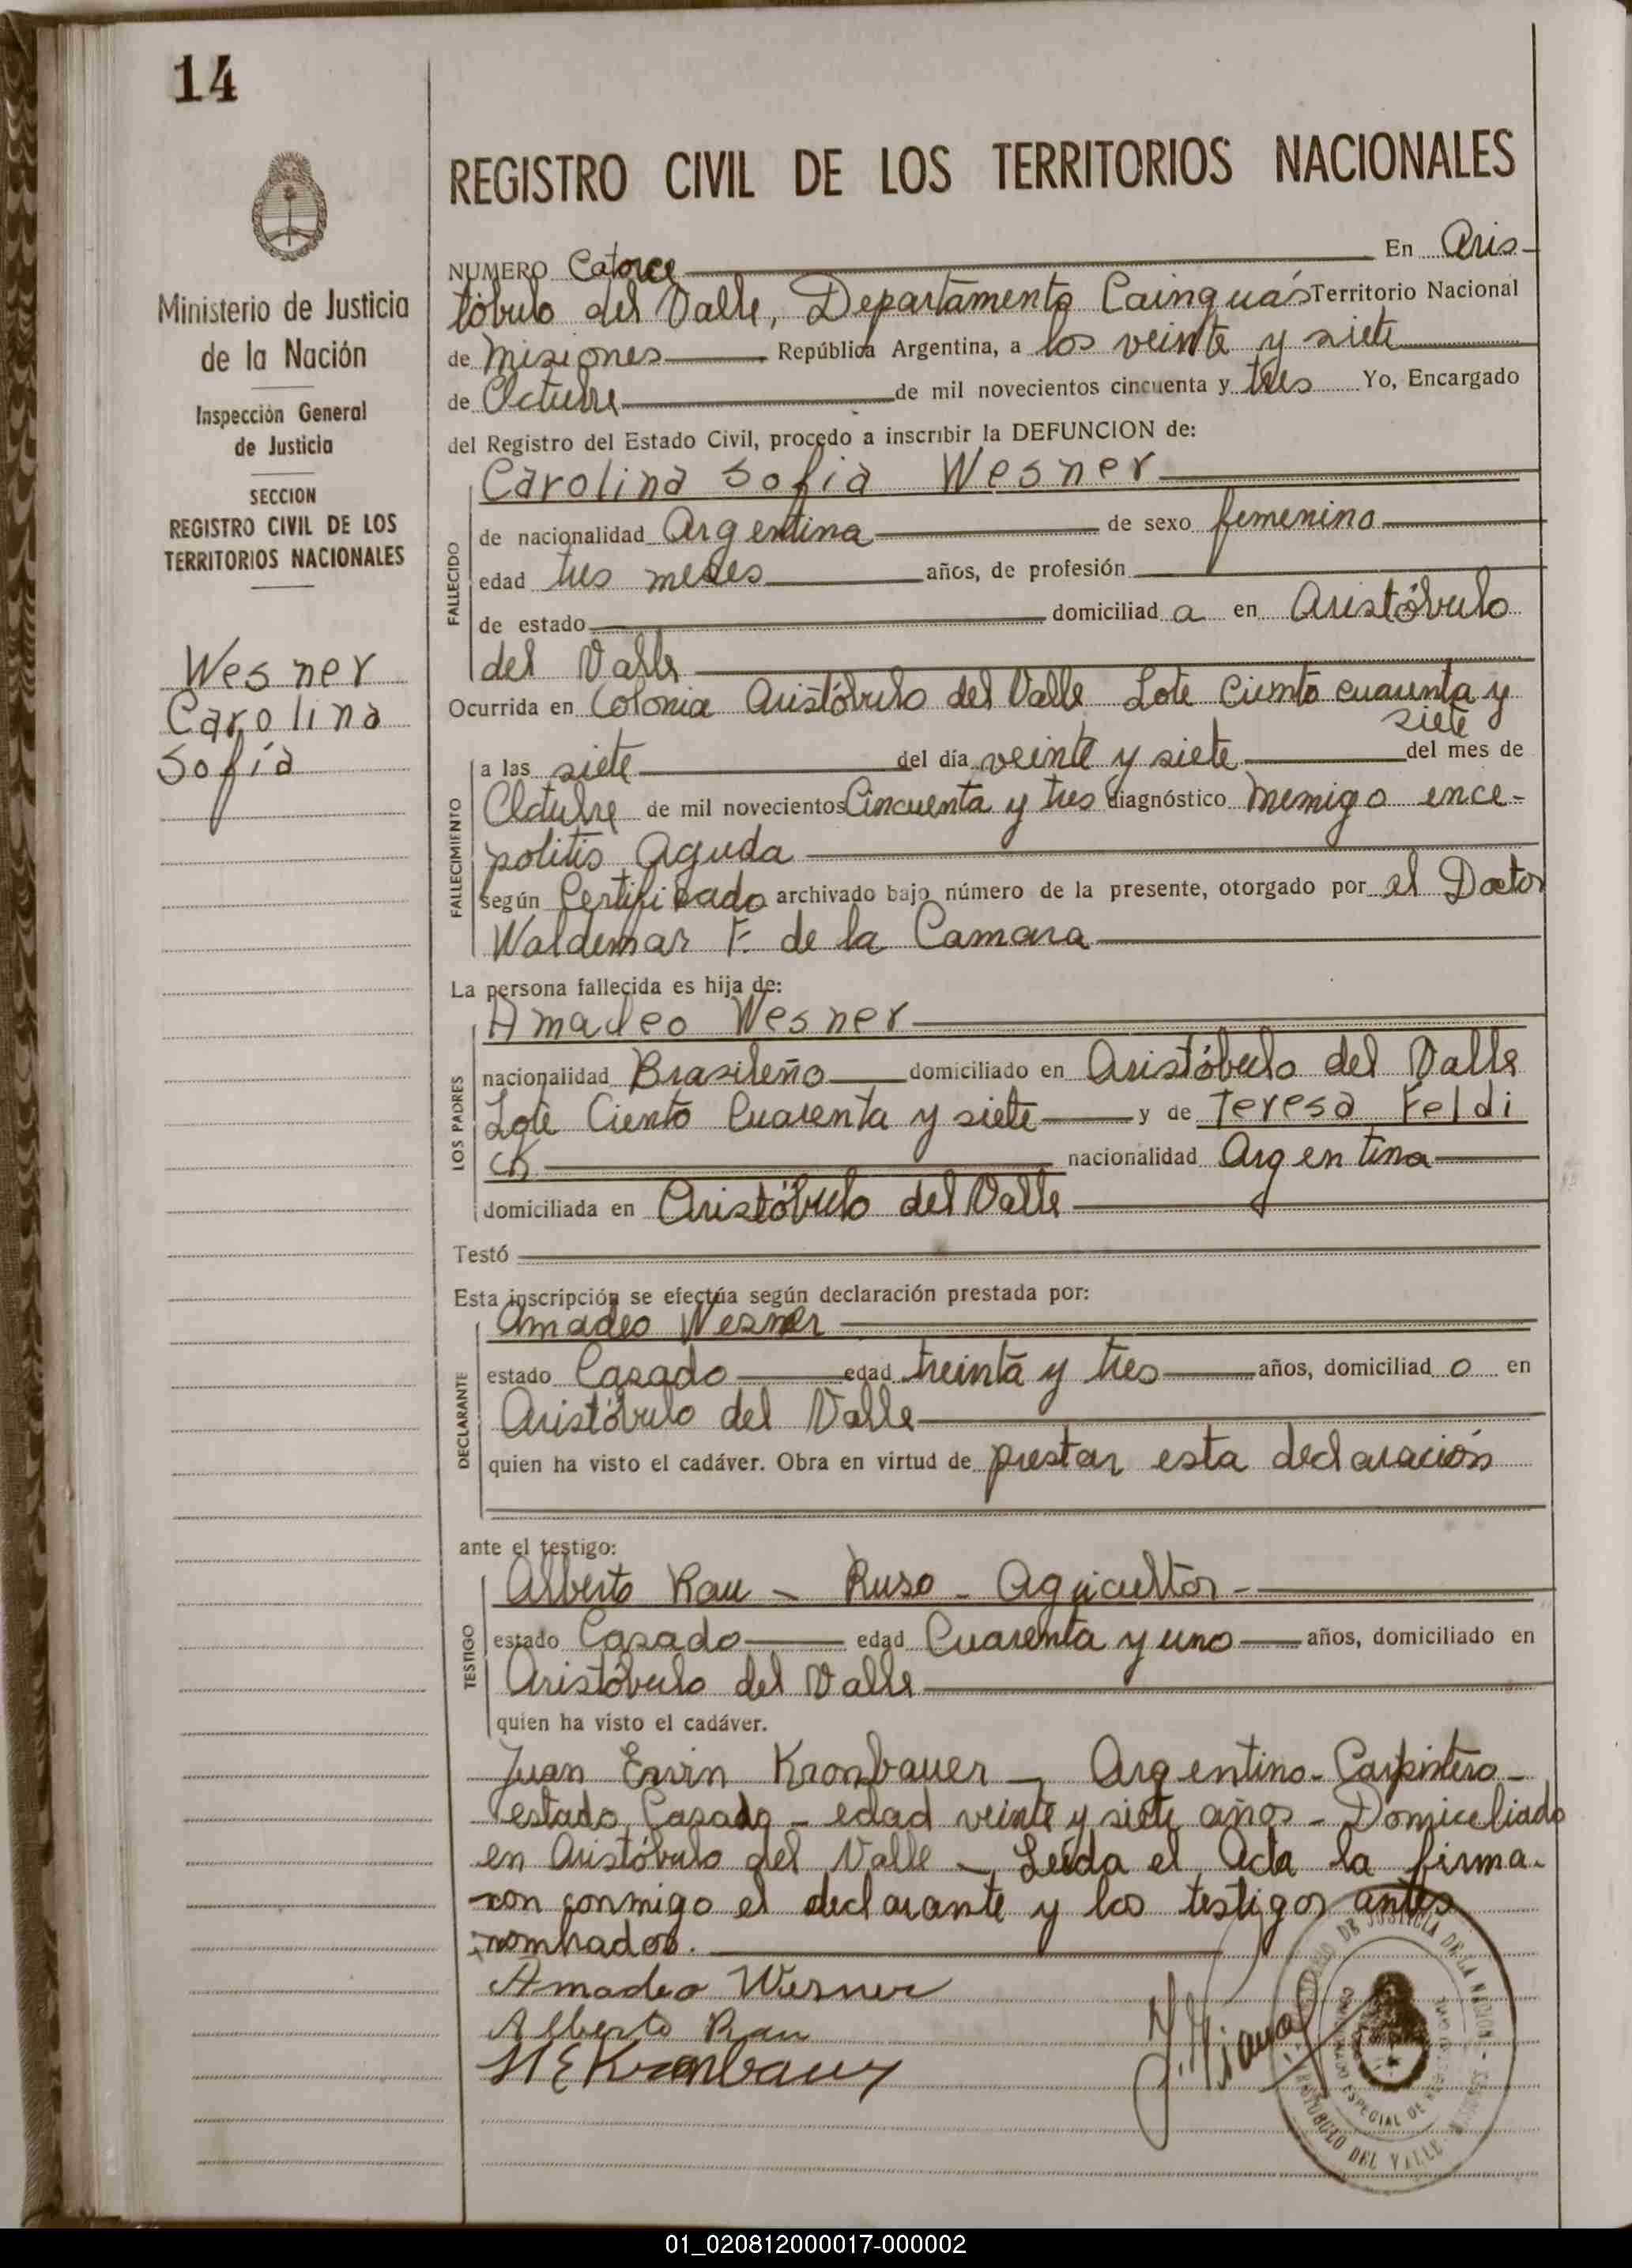 14
Ministerio de Justicia
de la Nación
Inspección General
de Justicia
SECCION
REGISTRO CIVIL DE LOS
TERRITORIOS NACIONALES
Wesner
Carolina
Sofía
REGISTRO CIVIL DE LOS TERRITORIOS NACIONALES
NUMERO Catorce En Aris-
tóbulo del Valle, Departamento Cainguás Territorio Nacional
de Misiones República Argentina, a los veinte y siete
de Octubre de mil novecientos cincuenta y tres Yo, Encargado
del Registro del Estado Civil, procedo a inscribir la DEFUNCION de:
Carolina Sofia Wesner
de nacionalidad Argentina de sexo femenino
edad tres meses años, de profesión
de estado domiciliad a en Aristóbulo
del Valle
FALLECIDO
Ocurrida en Colonia Aristóbulo del Valle Lote Ciento cuarenta y
siete
a las siete del día veinte y siete del mes de
Octubre de mil novecientos Cincuenta y tres diagnóstico Memigo ence-
politis Aguda
según Certificado archivado bajo número de la presente, otorgado por el Doctor
Waldemar F. de la Camara
FALLECIMIENTO
La persona fallecida es hija de:
Amadeo Wesner
nacionalidad Brasileño domiciliado en Aristóbulo del Valle
Lote Ciento Cuarenta y siete y de Teresa Feldi
ck nacionalidad Argentina
domiciliada en Aristóbulo del Valle
LOS PADRES
Testó
Esta inscripción se efectúa según declaración prestada por:
Amadeo Wesner
estado Casado edad treinta y tres años, domiciliad o en
Aristóbulo del Valle
quien ha visto el cadáver. Obra en virtud de prestar esta declaración
DECLARANTE
ante el testigo:
Alberto Rau - Ruso - Agricultor -
estado Casado edad Cuarenta y uno años, domiciliado en
Aristóbulo del Valle
quien ha visto el cadáver.
TESTIGO
Juan Ervin Kronbauer - Argentino - Carpintero -
estado Casado - edad veinte y siete años - Domiciliado
en Aristóbulo del Valle - Leída el Acta la firma-
ron conmigo el declarante y los testigos antes
nombrados.
Amadeo Wesner
Alberto Rau
Kronbauer
DE JUSTICIA DE LA NACION
ESPECIAL DE
ARISTOBULO DEL VALLE
01_020812000017-000002